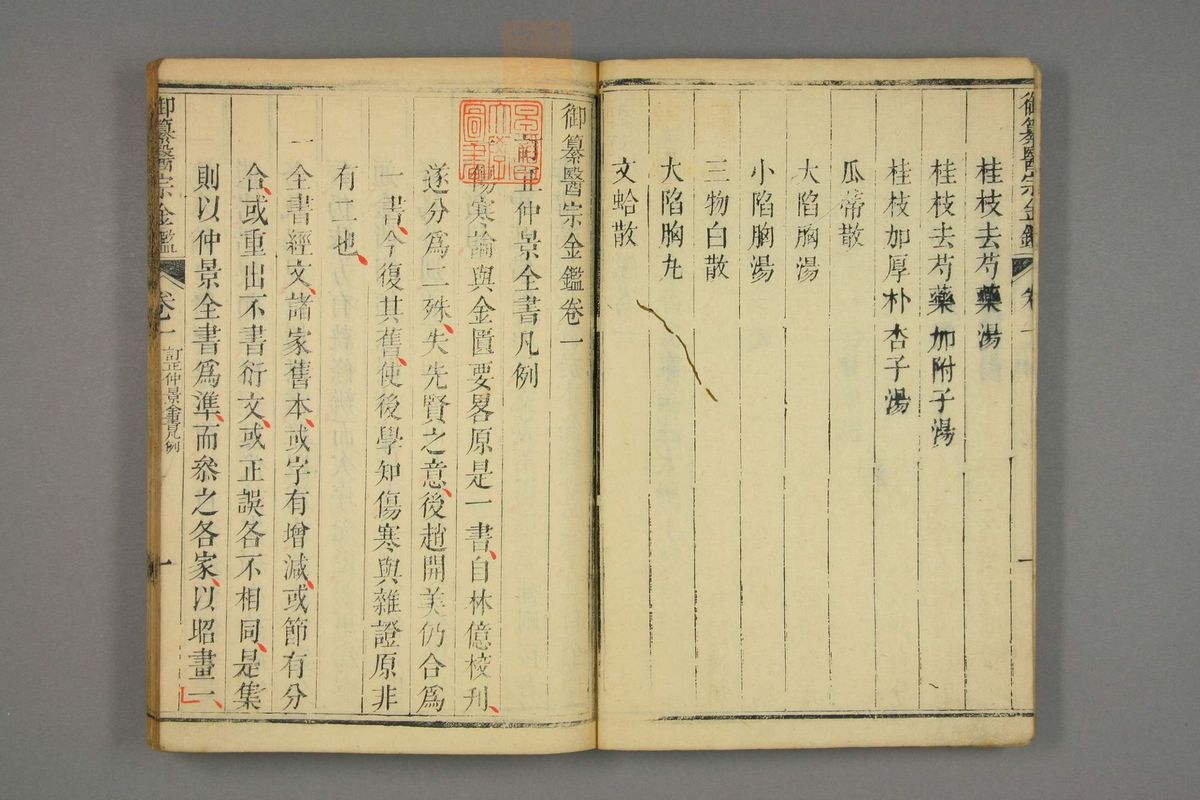 御纂醫宗金鑑
桂枝去芍藥湯
桂枝去芍藥加附子湯
桂枝加厚朴杏子湯
瓜蒂散
大陷胸湯
小陷胸湯
三物白散
大陷胸丸
文蛤散
御纂醫宗金鑑卷一
訂正仲景全書凡例
一傷寒論與金匱要畧原是一書、自林億校刊、
遂分爲二、殊失先賢之意、後趙開美仍合爲
一書、今復其舊、使後學知傷寒與雜證原非
有二也、
一全書經文、諸家舊本、或字有增減、或節有分
合、或重出不書衍文、或正誤各不相同、是集
則以仲景全書爲準、而叅之各家、以昭畫一、
御纂醫宗金鑑
卷一
訂正仲景全書凡例
一